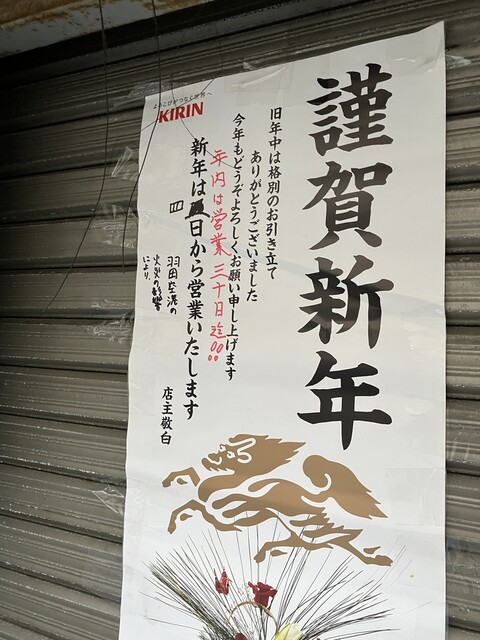 よろこびがつなぐ世界へ
KIRIN
謹賀新年
旧年中は格別のお引き立て
ありがとうございました
今年もどうぞよろしくお願い申し上げます
年内は営業三十日迄!!
新年は四日から営業いたします
羽田空港の
火災の影響
により
店主敬白